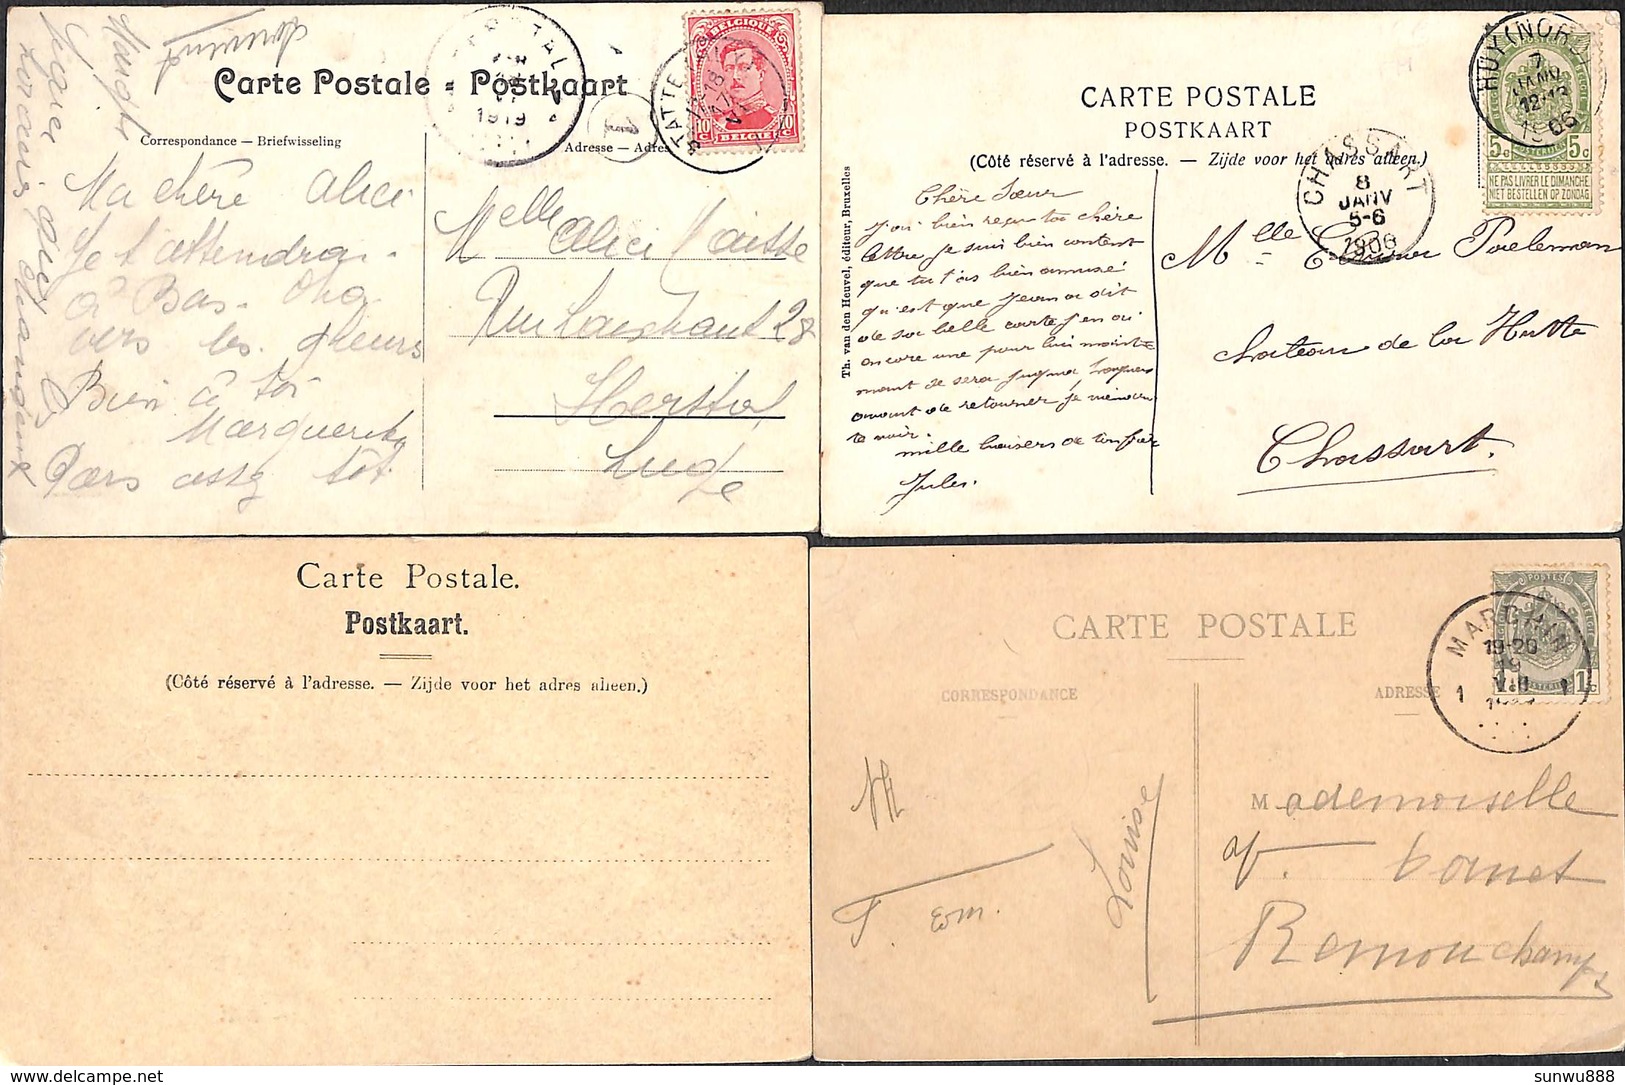 Carte Postale - Postkaart
Correspondance — Briefwisseling
Adresse — Adres
BELGIQUE
10 c
BELGIË
1919
Ma chère Alice
Je t'attendrai
à Bas-Oha
vers les heures
Bien à toi
Marguerite
Pars assez tôt
Melle Alice
28
Herstal
Liège
CARTE POSTALE
POSTKAART
(Côté réservé à l'adresse. — Zijde voor het adres alleen.)
Th. van den Heuvel, éditeur, Bruxelles
HUY (NORD)
7
JANV
12-13
1906
5c 5c
NE PAS LIVRER LE DIMANCHE
NIET BESTELLEN OP ZONDAG
CHASSART
8
JANV
5-6
1906
Chère Sœur
J'ai bien reçu ta chère
lettre, je suis bien content
que tu t'as bien amusé
qu'est que Jeana dit
de sa belle carte j'en ai
encore une pour lui mainte-
nant je serai jusqua
avant de retourner je viendrai
te voir.
mille baisers de ton frère
Jules.
Mlle Poeleman
Chateau de la Hutte
Chassart.
Carte Postale.
Postkaart.
(Côté réservé à l'adresse. — Zijde voor het adres alleen.)
CARTE POSTALE
CORRESPONDANCE
ADRESSE
POSTES
1c
MARCHIN
19-20
19
VII
1 1
Louise
Mademoiselle
Remouchamps
sunwu888